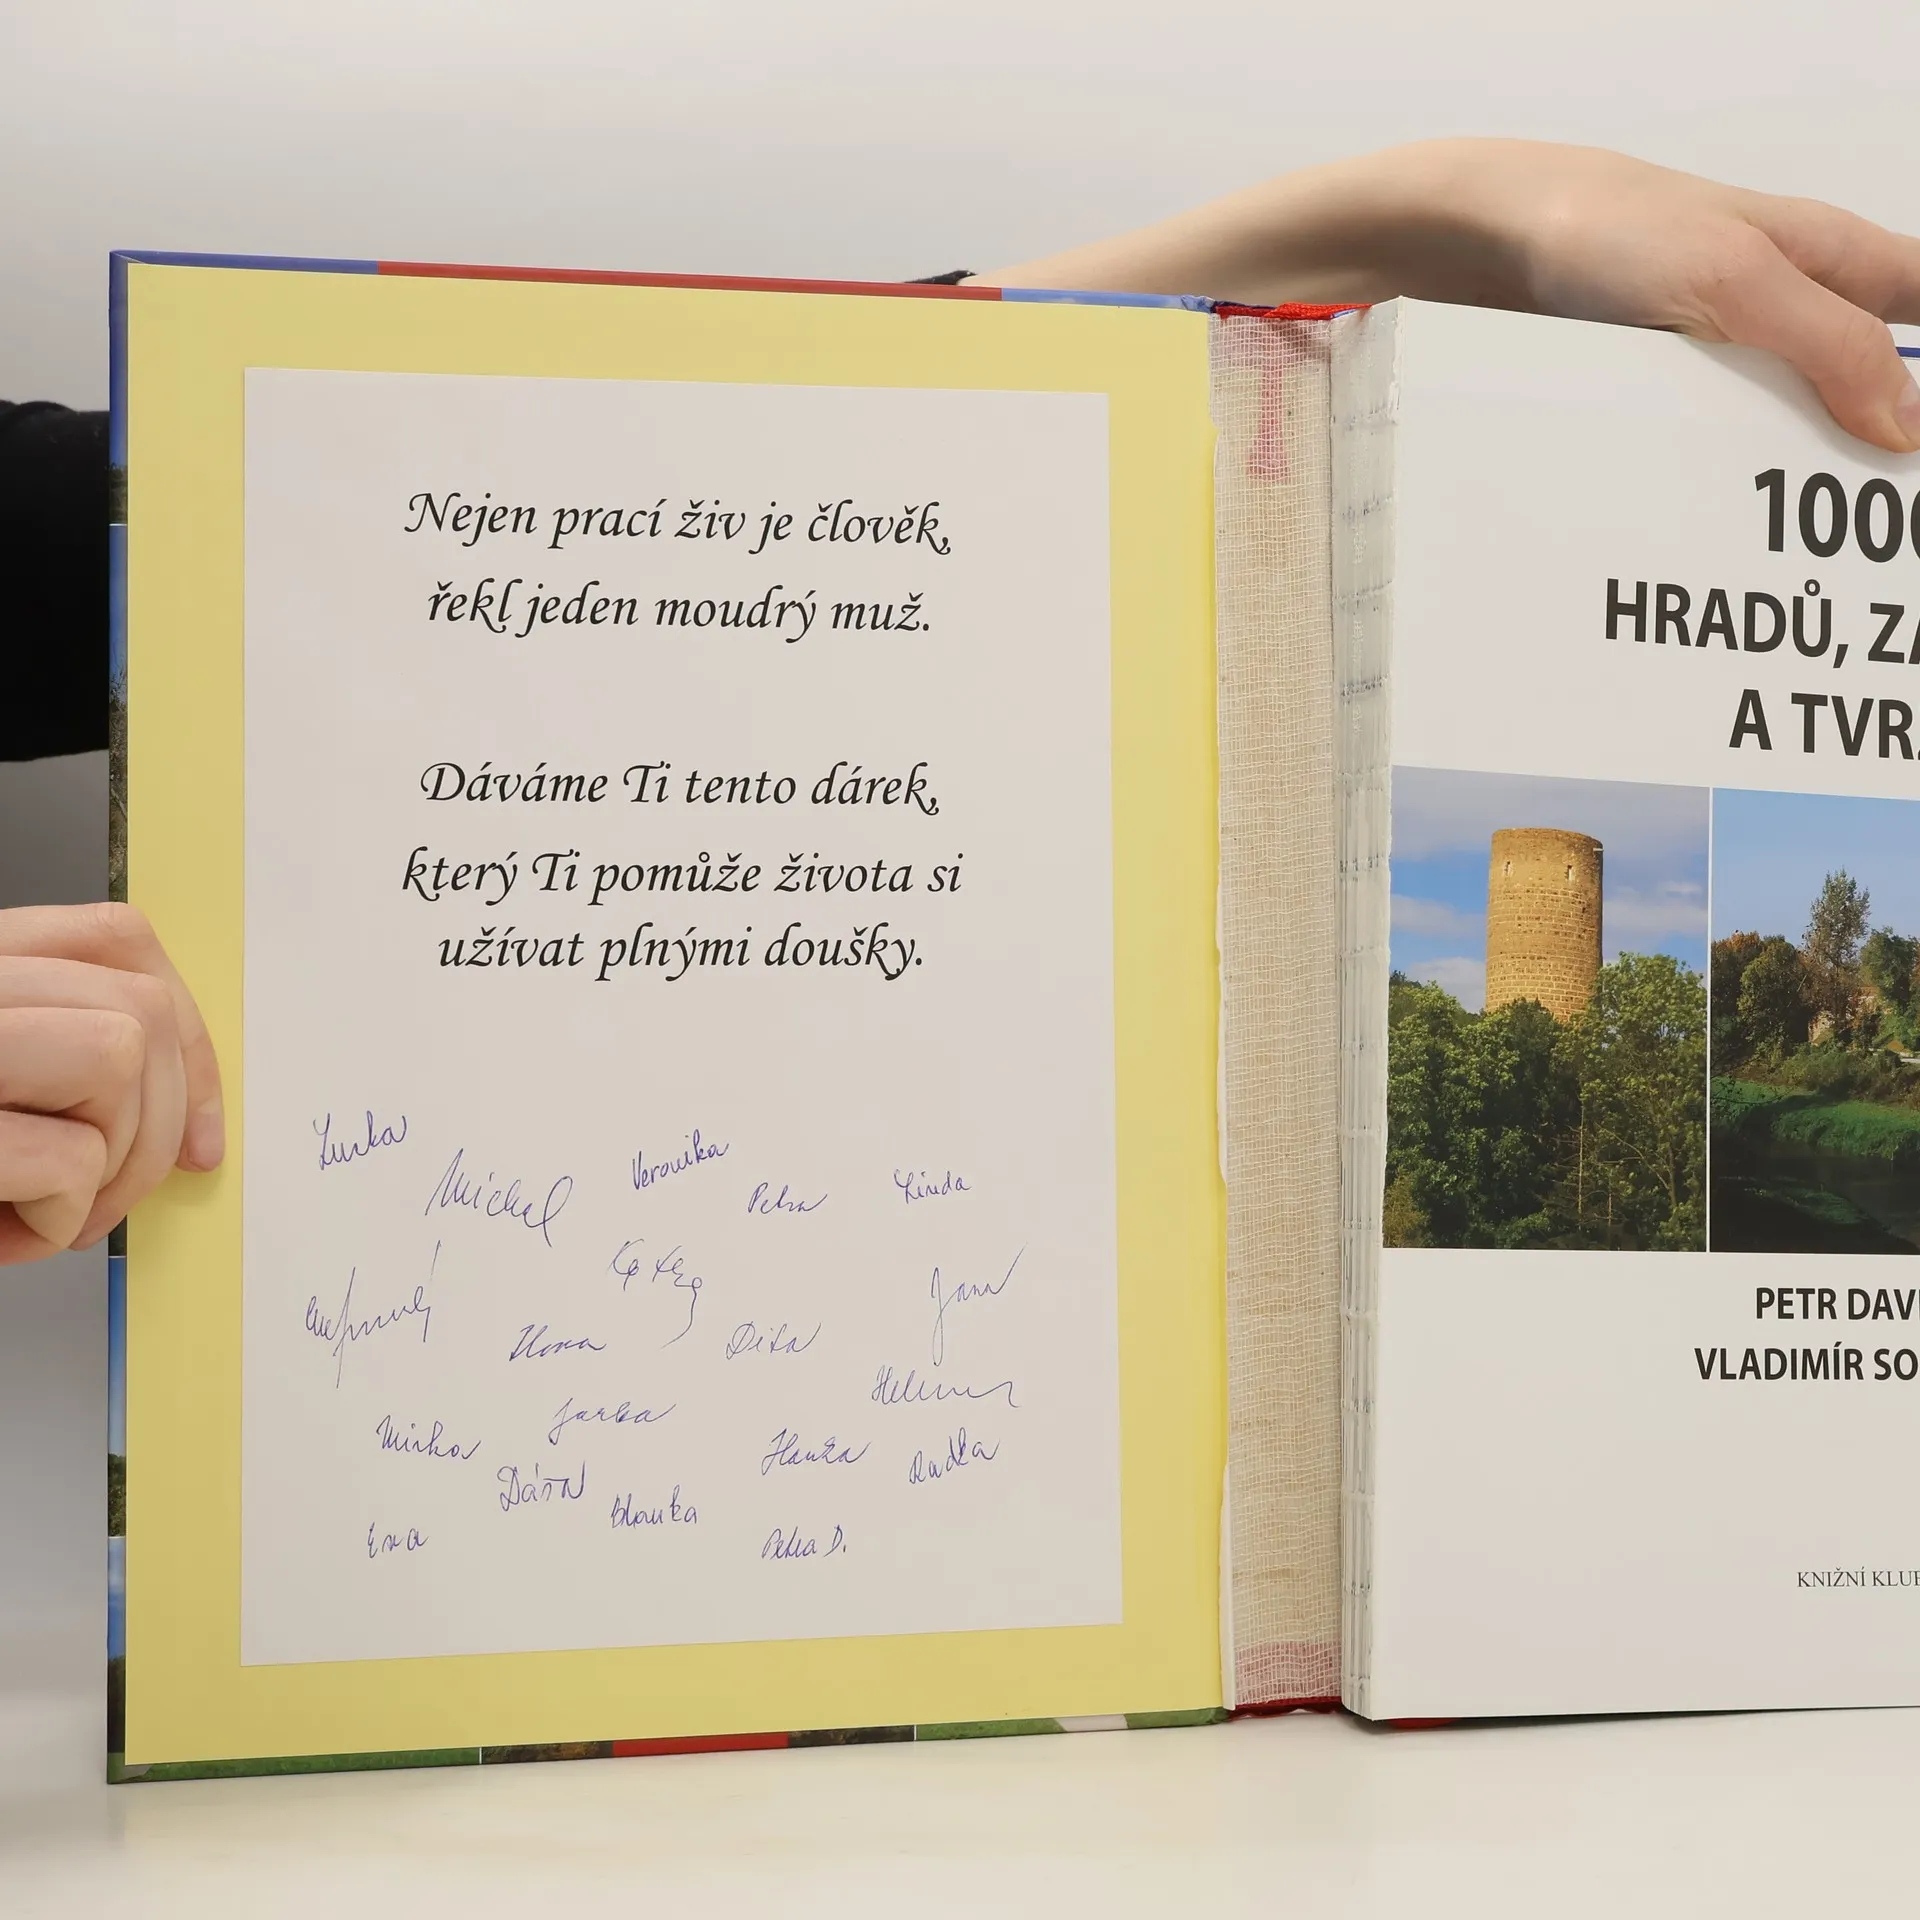 Nejen prací živ je člověk,
řekl jeden moudrý muž.
Dáváme Ti tento dárek,
který Ti pomůže života si
užívat plnými doušky.
Lucka
Michal
Veronika
Petra
Linda
Jana
Ilona
Dita
Helena
Jarka
Mirka
Hanka
Radka
Dáša
Blanka
Eva
Petra D.
1000
HRADŮ, ZÁ
A TVR
PETR DAVI
VLADIMÍR SO
KNIŽNÍ KLUB